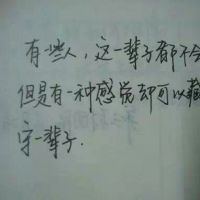 有些人，这一辈子都不会
但是有一种感觉却可以藏
守一辈子.